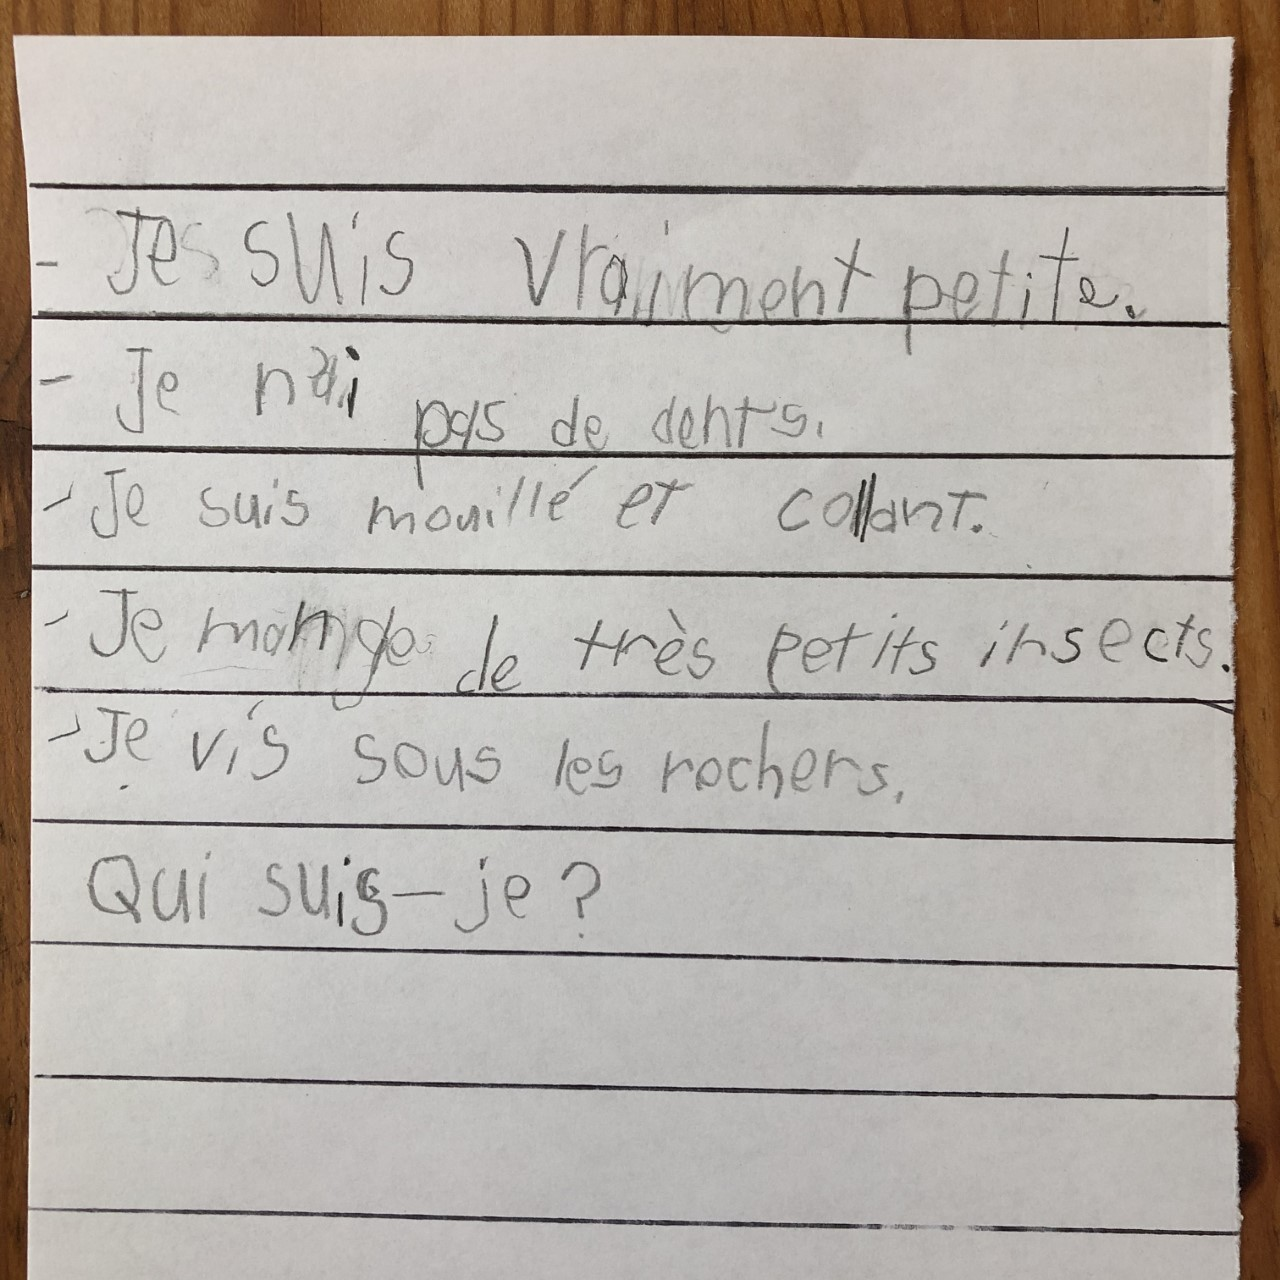 - Je suis vraiment petite.
- Je n'ai pas de dents.
- Je suis mouillé et collant.
- Je mange de très petits insects.
- Je vis sous les rochers.
Qui suis-je ?